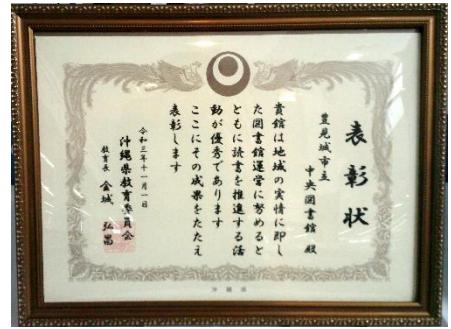 表彰状
豊見城市立
中央図書館 殿
貴館は地域の実情に即し
た図書館運営に努めると
ともに読書を推進する活
動が優秀であります
ここにその成果をたたえ
表彰します
令和三年十一月一日
沖縄県教育委員会
教育長 金城 弘昌
沖縄県